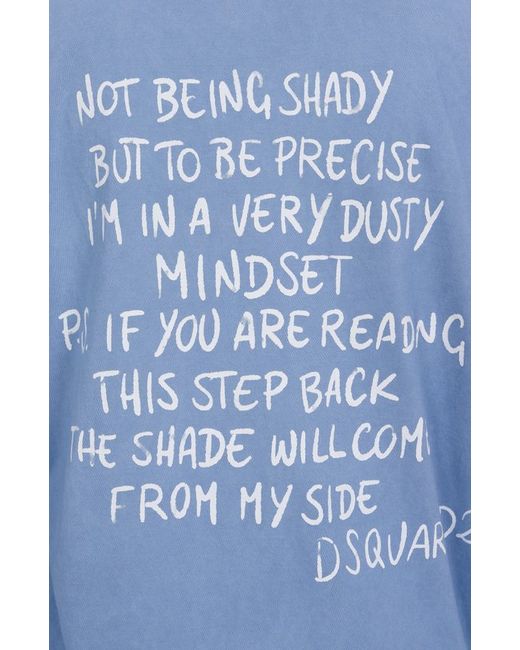 NOT BEING SHADY
BUT TO BE PRECISE
I'M IN A VERY DUSTY
MINDSET
P.S. IF YOU ARE READNG
THIS STEP BACK
THE SHADE WILL COME
FROM MY SIDE
DSQUARD2